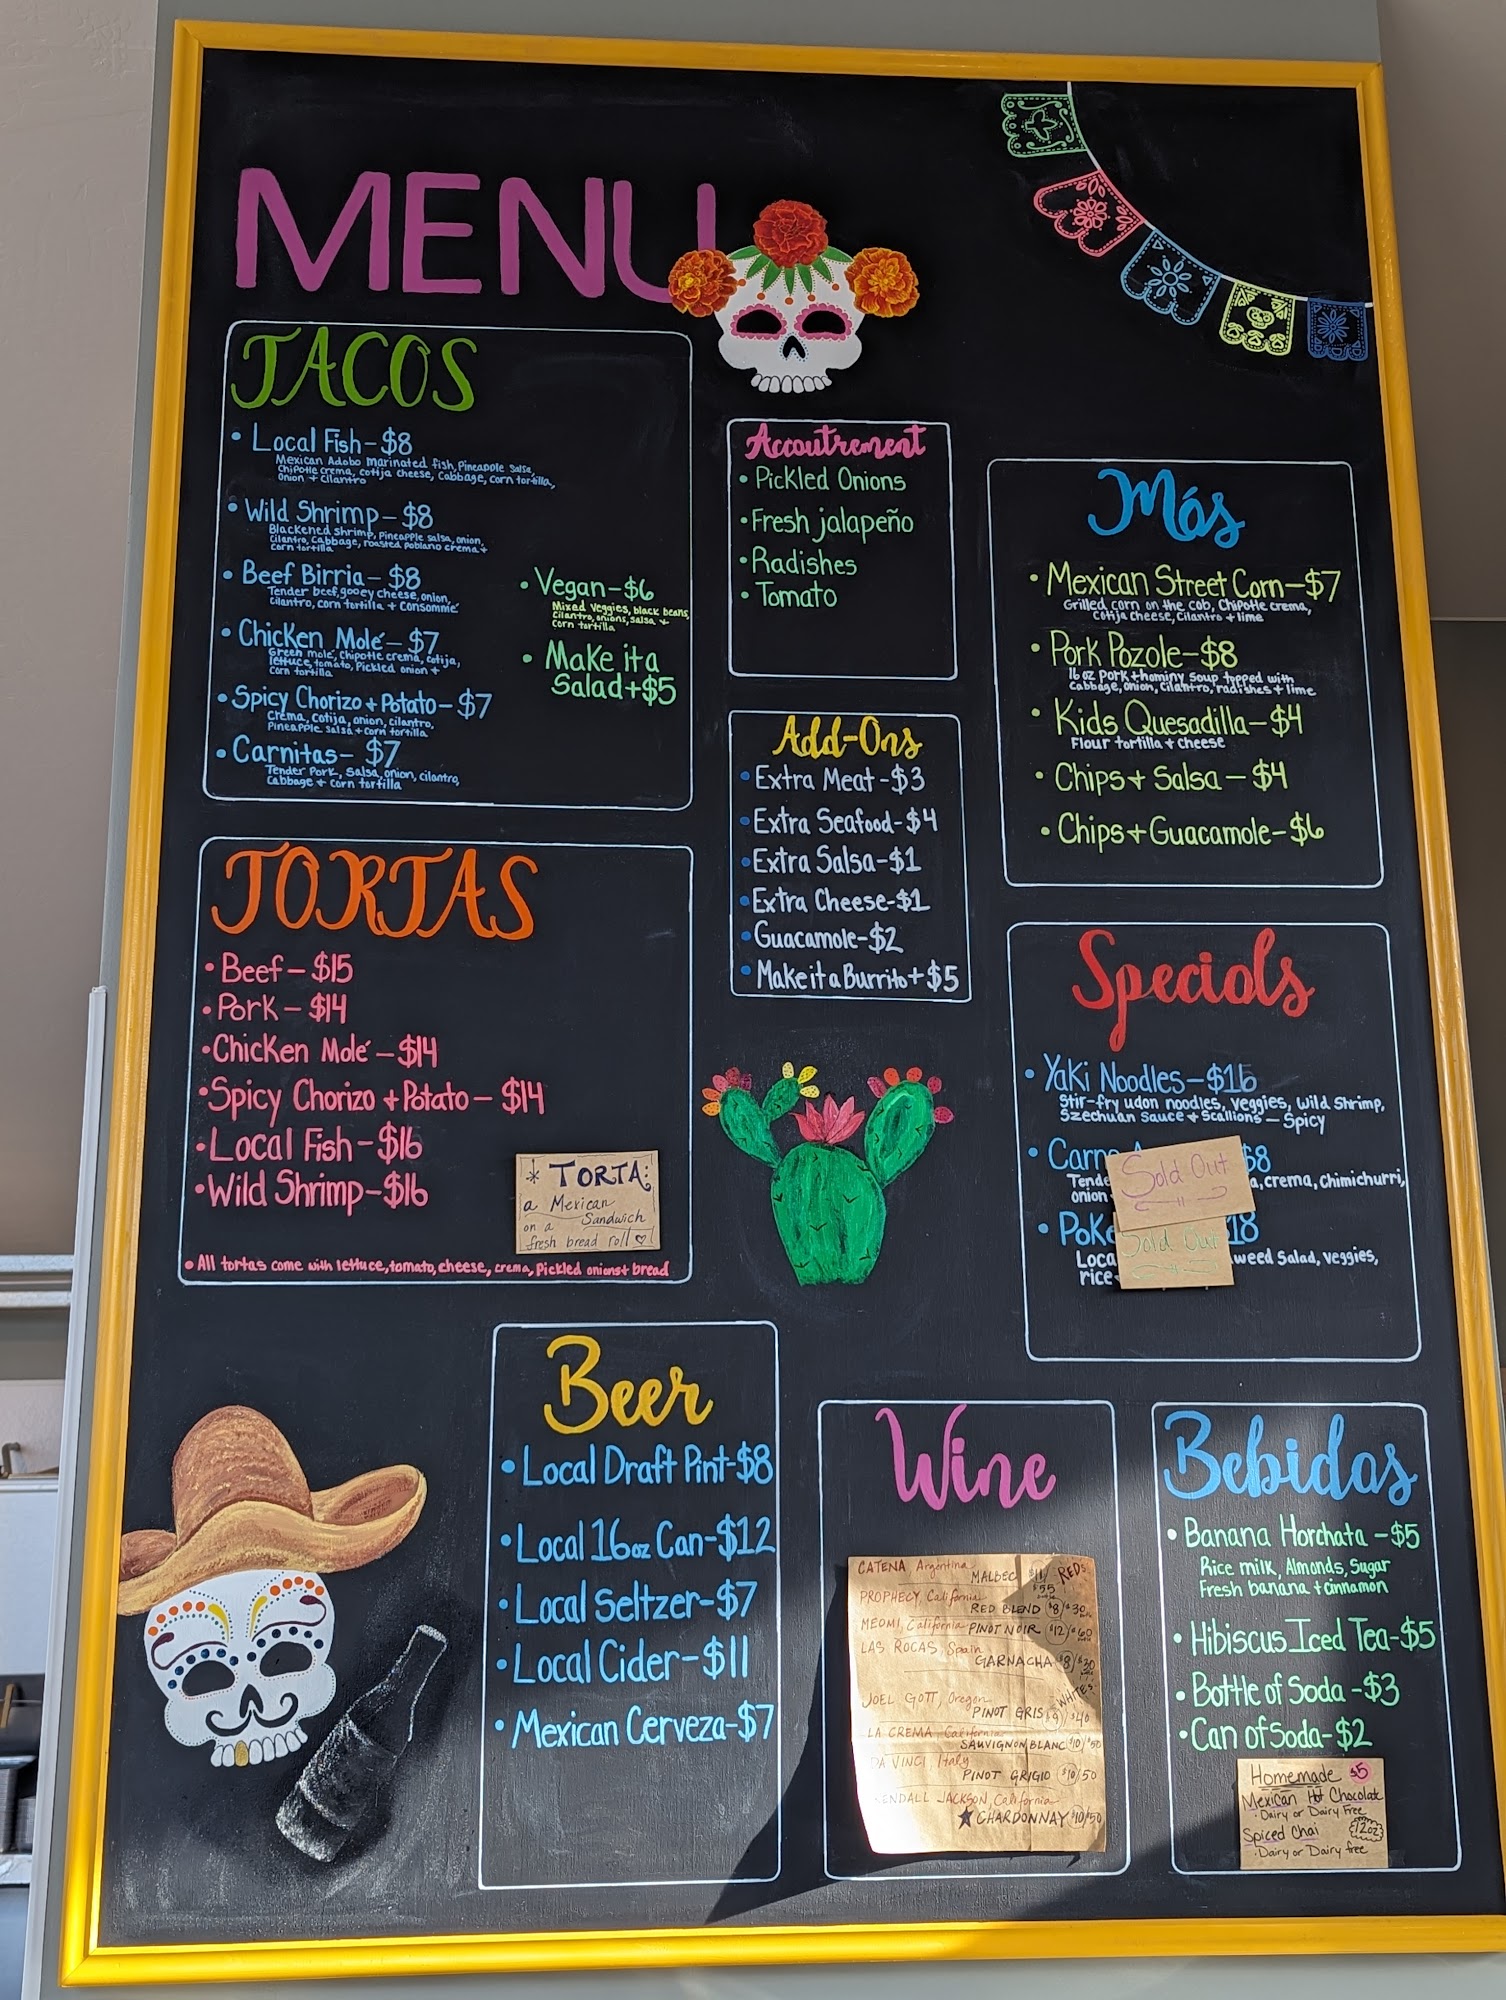 MENU
TACOS
• Local Fish - $8
Mexican Adobo marinated fish, Pineapple salsa,
Chipotle crema, cotija cheese, Cabbage, corn tortilla,
onion + cilantro
• Wild Shrimp - $8
Blackened shrimp, pineapple salsa, onion,
cilantro, cabbage, roasted poblano crema +
corn tortilla
• Beef Birria - $8
Tender beef, gooey cheese, onion,
cilantro, corn tortilla + consommé
• Chicken Molé - $7
Green molé, chipotle crema, cotija,
lettuce, tomato, Pickled onion +
corn tortilla
• Spicy Chorizo + Potato - $7
Crema, cotija, onion, cilantro,
Pineapple salsa + corn tortilla
• Carnitas - $7
Tender Pork, salsa, onion, cilantro,
cabbage + corn tortilla
• Vegan - $6
Mixed veggies, black beans,
cilantro, onions, salsa +
corn tortilla
• Make it a
Salad + $5
TORTAS
• Beef - $15
• Pork - $14
• Chicken Molé - $14
• Spicy Chorizo + Potato - $14
• Local Fish - $16
• Wild Shrimp - $16
* TORTA:
a Mexican
Sandwich
on a
fresh bread roll ♡
• All tortas come with lettuce, tomato, cheese, crema, Pickled onions + bread
Accoutrement
• Pickled Onions
• Fresh jalapeño
• Radishes
• Tomato
Add-Ons
• Extra Meat - $3
• Extra Seafood - $4
• Extra Salsa - $1
• Extra Cheese - $1
• Guacamole - $2
• Make it a Burrito + $5
Más
• Mexican Street Corn - $7
Grilled corn on the cob, chipotle crema,
cotija cheese, cilantro + lime
• Pork Pozole - $8
16 oz pork + hominy soup topped with
cabbage, onion, cilantro, radishes + lime
• Kids Quesadilla - $4
Flour tortilla + cheese
• Chips + Salsa - $4
• Chips + Guacamole - $6
Specials
• Yaki Noodles - $16
Stir-fry udon noodles, veggies, wild shrimp,
Szechuan sauce + scallions - Spicy
• Carne $8
crema, chimichurri,
onion
Sold Out
• Poke
Salad, veggies,
rice
Sold Out
Beer
• Local Draft Pint - $8
• Local 16oz Can - $12
• Local Seltzer - $7
• Local Cider - $11
• Mexican Cerveza - $7
Wine
CATENA Argentina REDS
MALBEC $11/$55
PROPHECY, California
RED BLEND $8/$30
MEOMI, California PINOT NOIR $12/$60
LAS ROCAS, Spain
GARNACHA $8/$30
WHITES
JOEL GOTT, Oregon
PINOT GRIS $9/$40
LA CREMA California
SAUVIGNON BLANC $10/$50
DA VINCI, Italy
PINOT GRIGIO $10/50
KENDALL JACKSON, California
★ CHARDONNAY $10/$50
Bebidas
• Banana Horchata - $5
Rice milk, Almonds, Sugar
Fresh banana + cinnamon
• Hibiscus Iced Tea - $5
• Bottle of Soda - $3
• Can of Soda - $2
Homemade $5
Mexican Hot Chocolate
· Dairy or Dairy Free
Spiced Chai 12oz
· Dairy or Dairy free